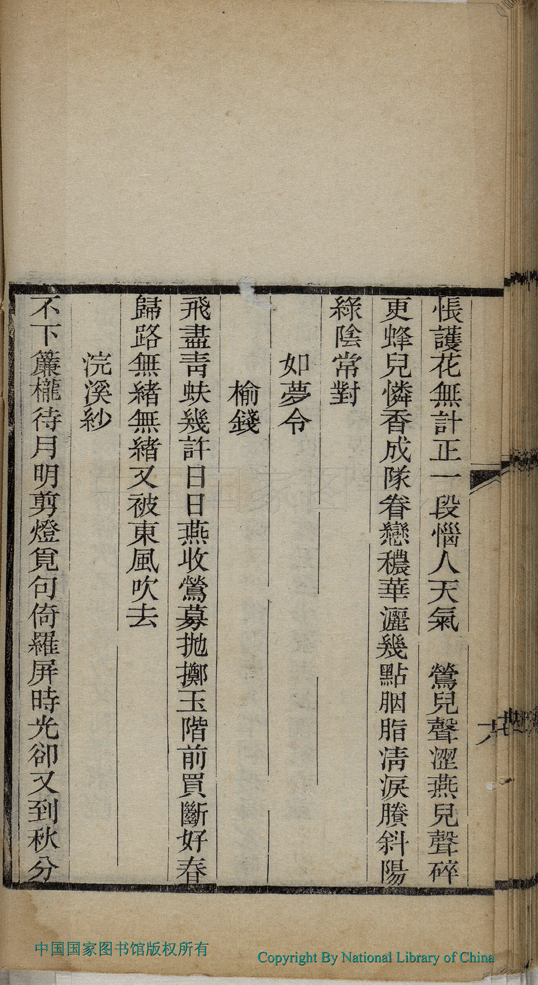 悵護花無計正一段惱人天氣　鶯兒聲澀燕兒聲碎
更蜂兒憐香成隊眷戀穠華灑幾點胭脂清淚賸斜陽
綠陰常對
如夢令
榆錢
飛盡青蚨幾許日日燕收鶯募拋擲玉階前買斷好春
歸路無緒無緒又被東風吹去
浣溪紗
不下簾櫳待月明剪燈覓句倚羅屏時光卻又到秋分
中国国家图书馆版权所有
Copyright By National Library of China